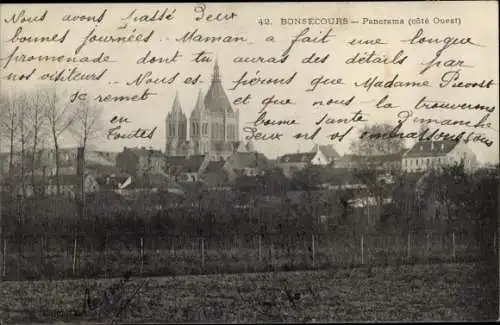 42. BONSECOURS - Panorama (côté Ouest)
Nous avons passé deux
bonnes journées. Maman, a fait une longue
promenade dont tu auras des détails par
nos visiteurs. Nous espérons que Madame Prevost
se remet et que nous la trouverons
toute bonne santé
deux nos embrassements